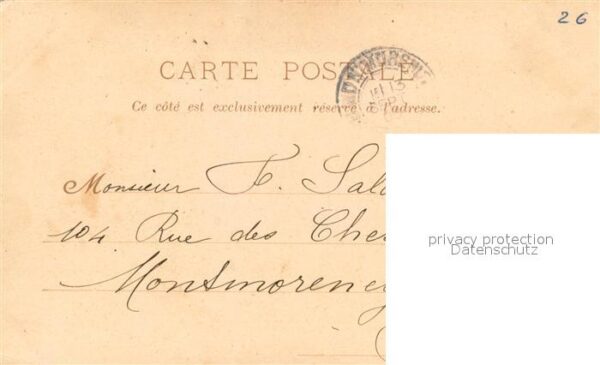 26
CARTE POSTALE
Ce côté est exclusivement réservé à l'adresse.
Monsieur F. Sala
104 Rue des Che
Montmorency
privacy protection
Datenschutz